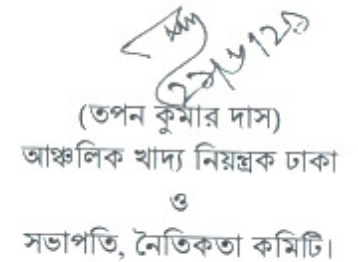 (তপন কুমার দাস)
আঞ্চলিক খাদ্য নিয়ন্ত্রক ঢাকা
ও
সভাপতি, নৈতিকতা কমিটি।